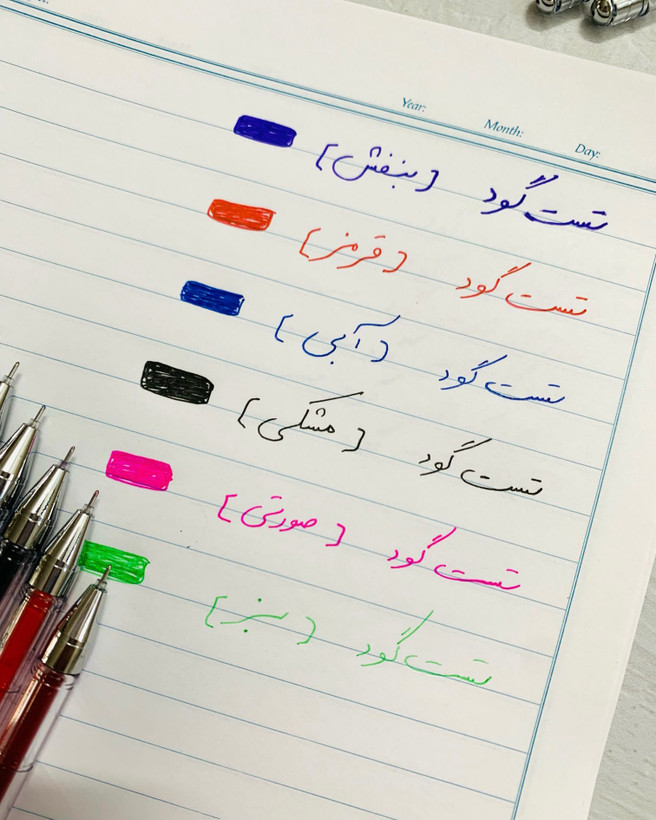 Year: Month: Day:
تست گود [بنفش]
تست گود [قرمز]
تست گود [آبی]
تست گود [مشکی]
تست گود [صورتی]
تست گود [سبز]